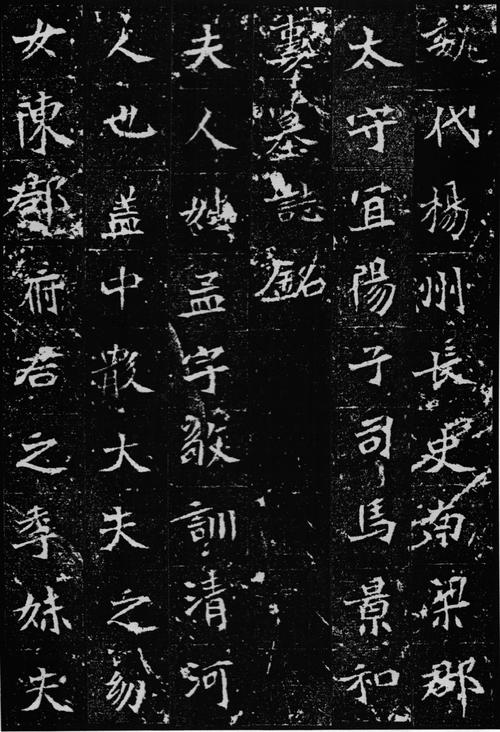 魏代楊州長史南梁郡
太守宜陽子司馬景和
妻墓誌銘
夫人妙孟字敬訓清河
人也盖中散大夫之幼
女陳郡府君之季妹夫